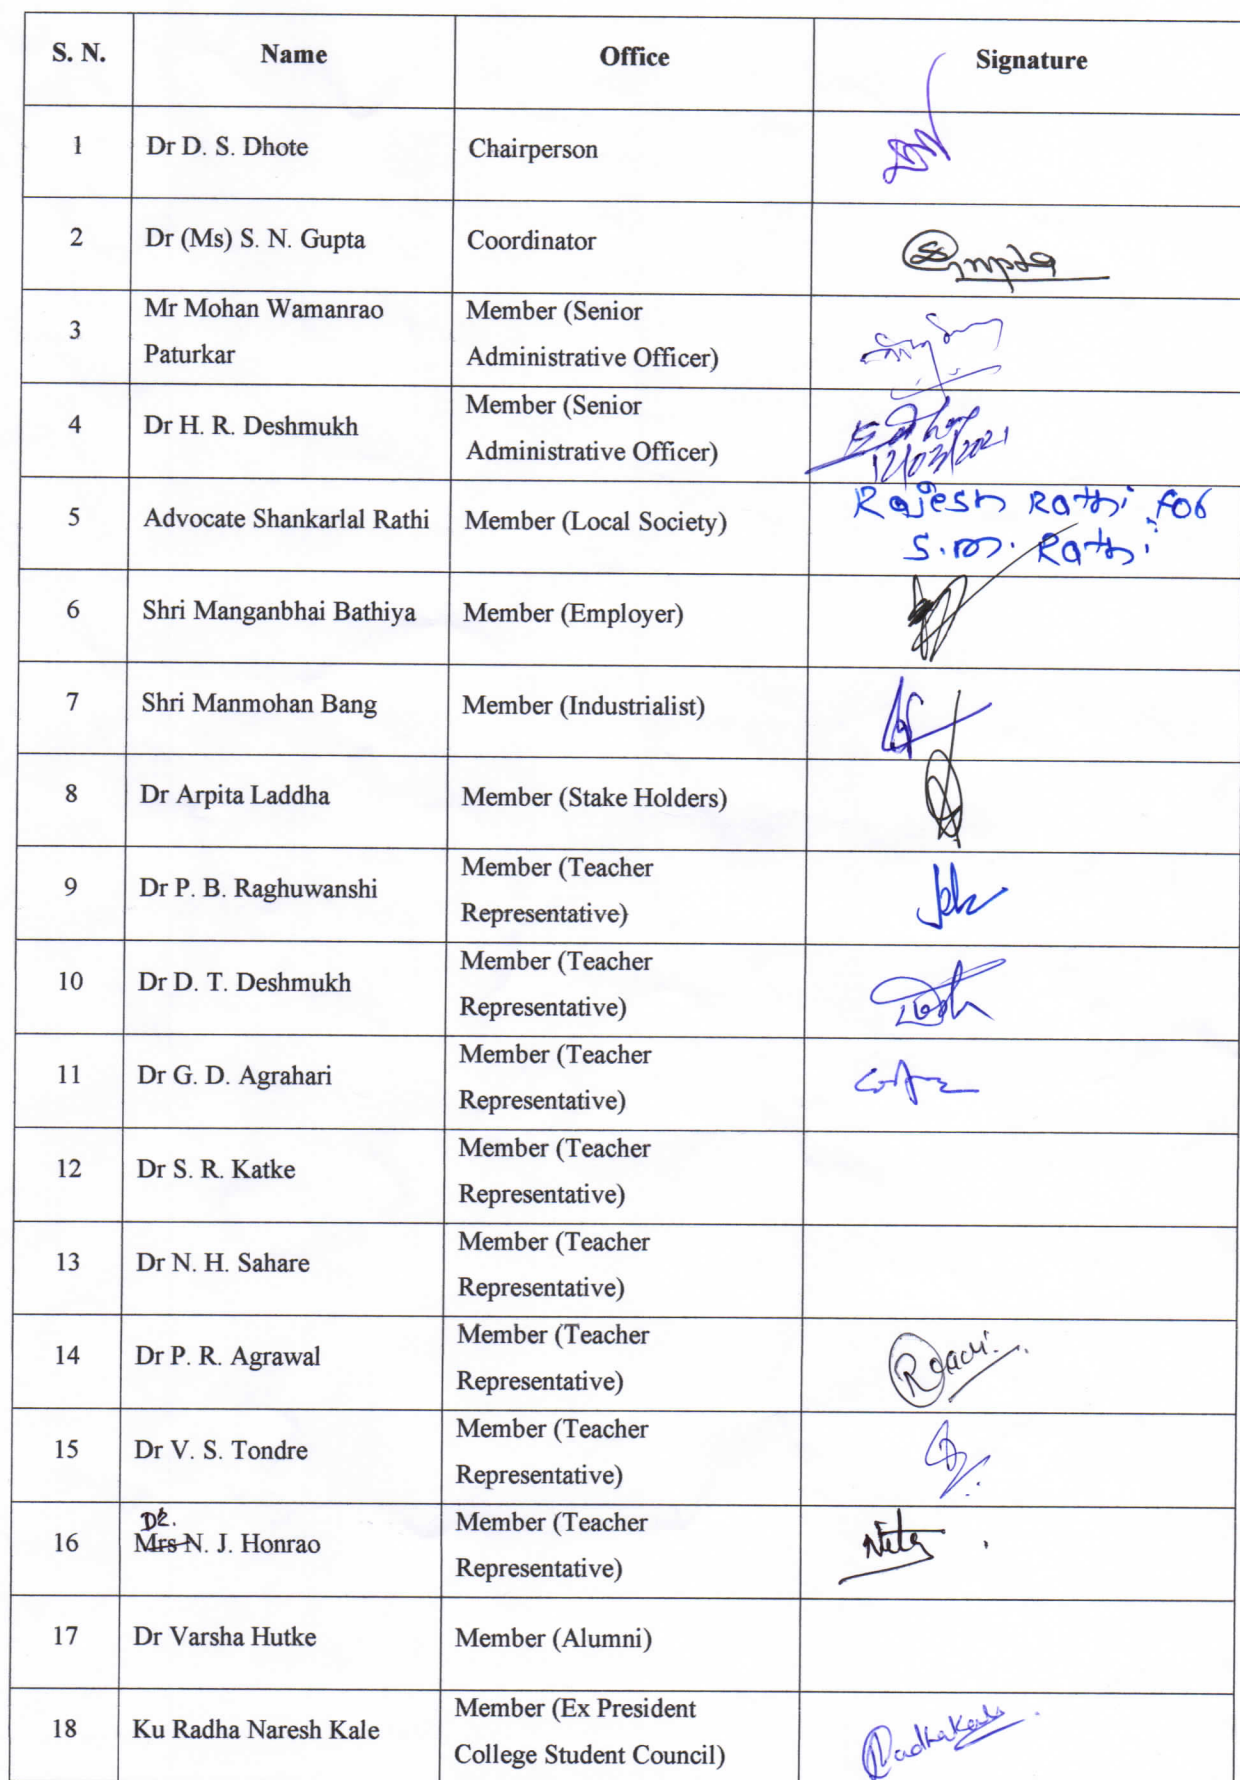 S. N. Name Office Signature
1 Dr D. S. Dhote Chairperson
2 Dr (Ms) S. N. Gupta Coordinator
3 Mr Mohan Wamanrao Paturkar Member (Senior Administrative Officer)
4 Dr H. R. Deshmukh Member (Senior Administrative Officer) 12/03/2021
5 Advocate Shankarlal Rathi Member (Local Society) Rajesh Rathi for
S.M. Rathi
6 Shri Manganbhai Bathiya Member (Employer)
7 Shri Manmohan Bang Member (Industrialist)
8 Dr Arpita Laddha Member (Stake Holders)
9 Dr P. B. Raghuwanshi Member (Teacher Representative)
10 Dr D. T. Deshmukh Member (Teacher Representative)
11 Dr G. D. Agrahari Member (Teacher Representative)
12 Dr S. R. Katke Member (Teacher Representative)
13 Dr N. H. Sahare Member (Teacher Representative)
14 Dr P. R. Agrawal Member (Teacher Representative)
15 Dr V. S. Tondre Member (Teacher Representative)
Dr.
16 Mrs N. J. Honrao Member (Teacher Representative)
17 Dr Varsha Hutke Member (Alumni)
18 Ku Radha Naresh Kale Member (Ex President College Student Council) Radhakale